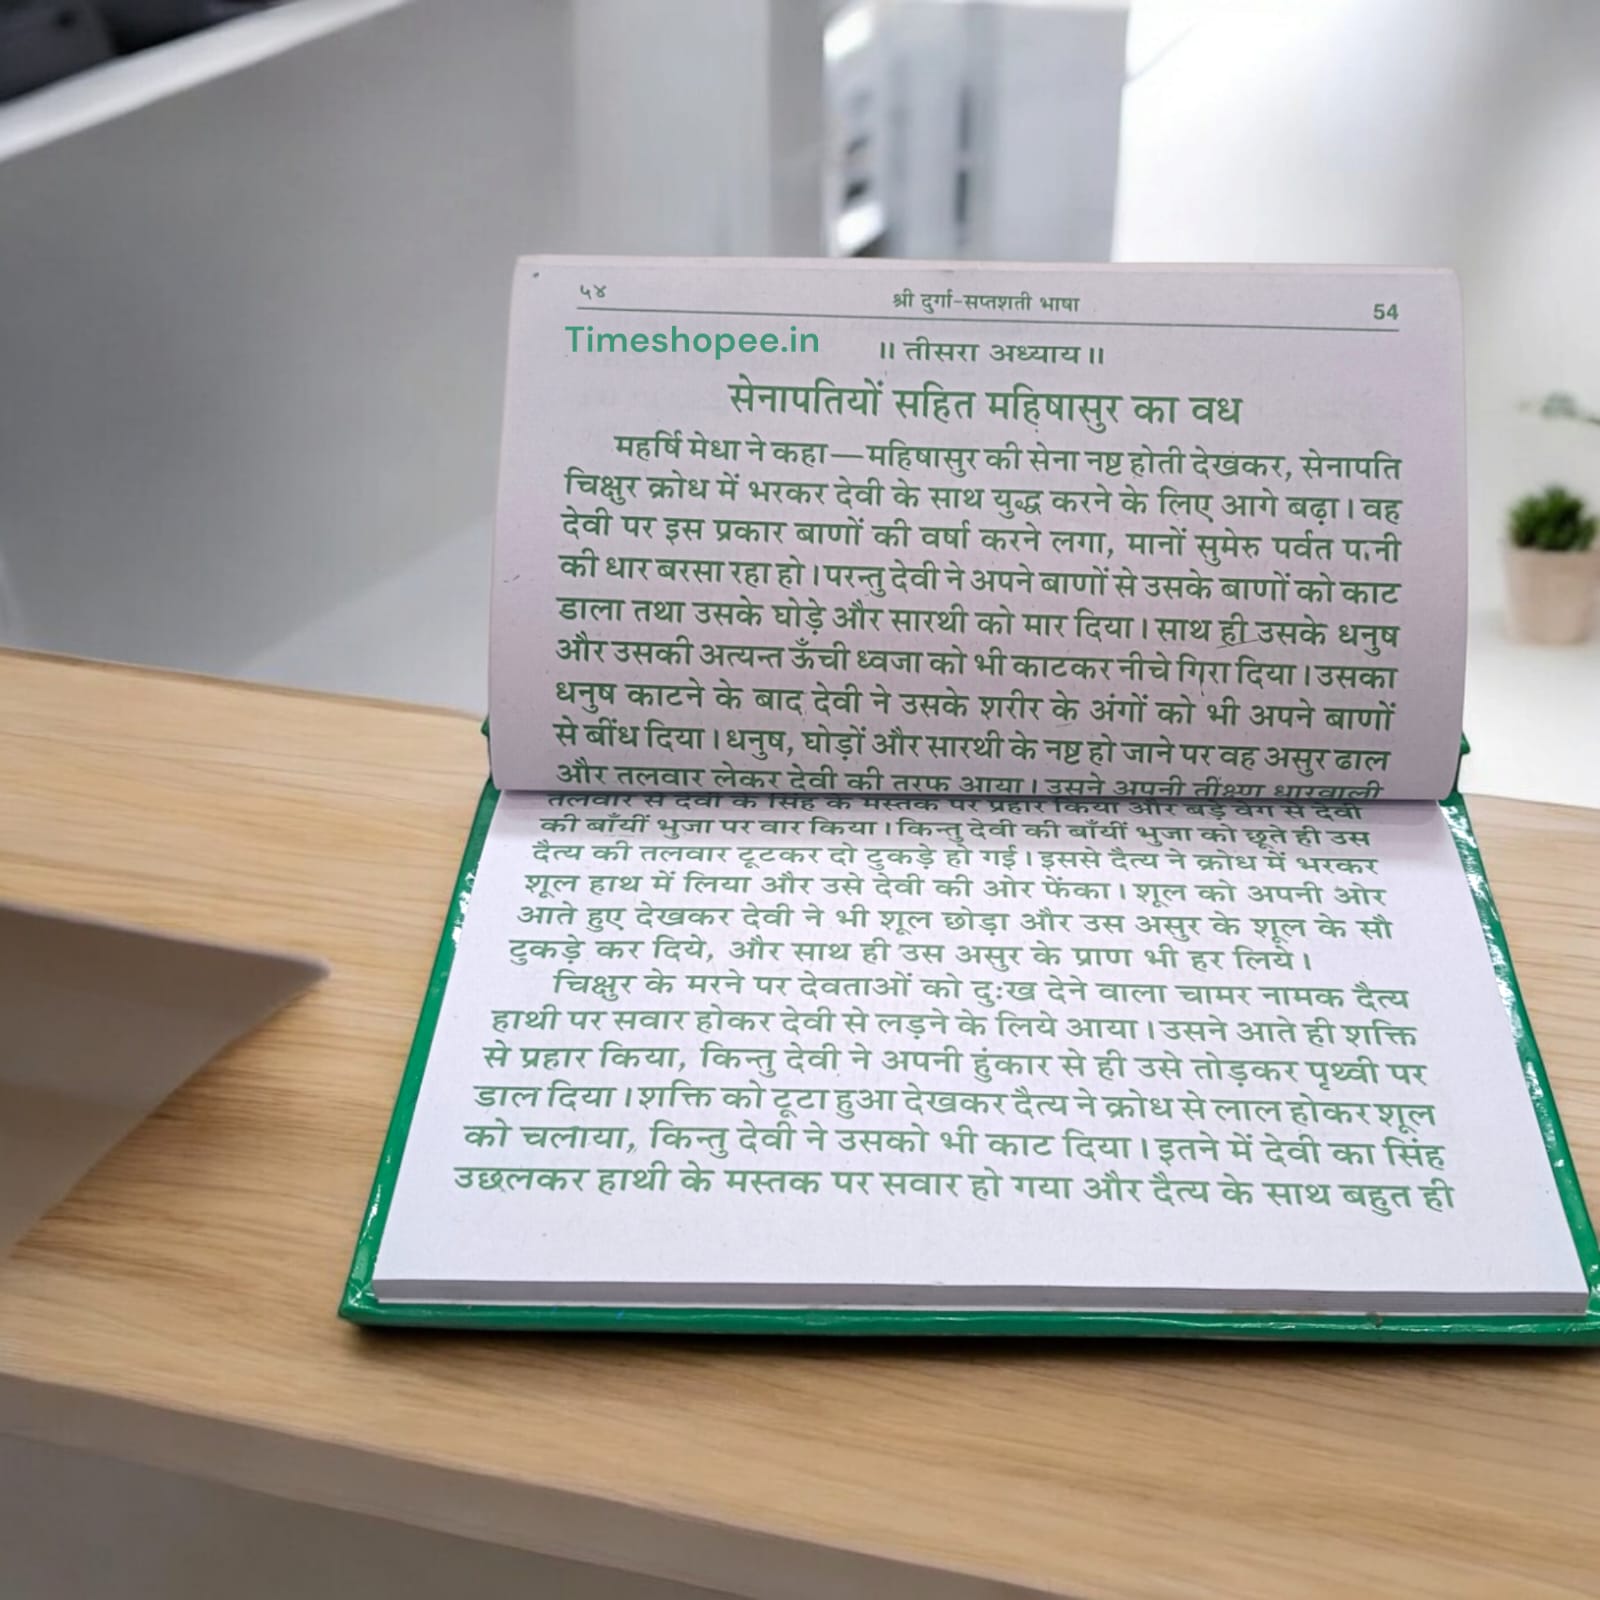 ५४ श्री दुर्गा-सप्तशती भाषा 54
Timeshopee.in
॥ तीसरा अध्याय ॥
सेनापतियों सहित महिषासुर का वध
महर्षि मेधा ने कहा—महिषासुर की सेना नष्ट होती देखकर, सेनापति
चिक्षुर क्रोध में भरकर देवी के साथ युद्ध करने के लिए आगे बढ़ा। वह
देवी पर इस प्रकार बाणों की वर्षा करने लगा, मानों सुमेरु पर्वत पानी
की धार बरसा रहा हो। परन्तु देवी ने अपने बाणों से उसके बाणों को काट
डाला तथा उसके घोड़े और सारथी को मार दिया। साथ ही उसके धनुष
और उसकी अत्यन्त ऊँची ध्वजा को भी काटकर नीचे गिरा दिया। उसका
धनुष काटने के बाद देवी ने उसके शरीर के अंगों को भी अपने बाणों
से बींध दिया। धनुष, घोड़ों और सारथी के नष्ट हो जाने पर वह असुर ढाल
और तलवार लेकर देवी की तरफ आया। उसने अपनी तीक्ष्ण धारवाली
तलवार से देवी के सिंह के मस्तक पर प्रहार किया और बड़े वेग से देवी
की बाँयीं भुजा पर वार किया। किन्तु देवी की बाँयीं भुजा को छूते ही उस
दैत्य की तलवार टूटकर दो टुकड़े हो गई। इससे दैत्य ने क्रोध में भरकर
शूल हाथ में लिया और उसे देवी की ओर फेंका। शूल को अपनी ओर
आते हुए देखकर देवी ने भी शूल छोड़ा और उस असुर के शूल के सौ
टुकड़े कर दिये, और साथ ही उस असुर के प्राण भी हर लिये।
चिक्षुर के मरने पर देवताओं को दुःख देने वाला चामर नामक दैत्य
हाथी पर सवार होकर देवी से लड़ने के लिये आया। उसने आते ही शक्ति
से प्रहार किया, किन्तु देवी ने अपनी हुंकार से ही उसे तोड़कर पृथ्वी पर
डाल दिया। शक्ति को टूटा हुआ देखकर दैत्य ने क्रोध से लाल होकर शूल
को चलाया, किन्तु देवी ने उसको भी काट दिया। इतने में देवी का सिंह
उछलकर हाथी के मस्तक पर सवार हो गया और दैत्य के साथ बहुत ही